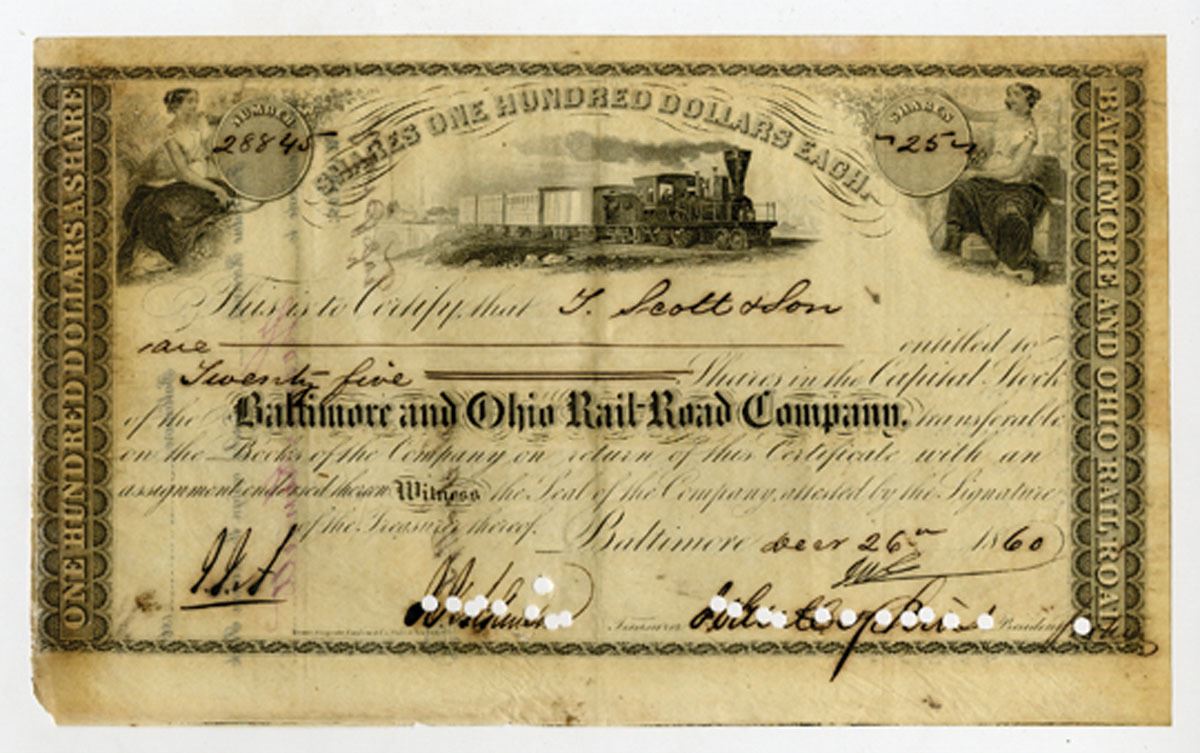 NUMBER
28845
SHARES ONE HUNDRED DOLLARS EACH.
SHARES
25
ONE HUNDRED DOLLARS A SHARE
BALTIMORE AND OHIO RAIL ROAD
This is to Certify, that T. Scott & Son
are entitled to
Twenty five Shares in the Capital Stock
of the Baltimore and Ohio Rail-Road Company, transferable
on the Books of the Company on return of this Certificate with an
assignment endorsed thereon Witness the Seal of the Company, attested by the Signature
of the Treasurer thereof. Baltimore Decr 26th 1860
Treasurer President